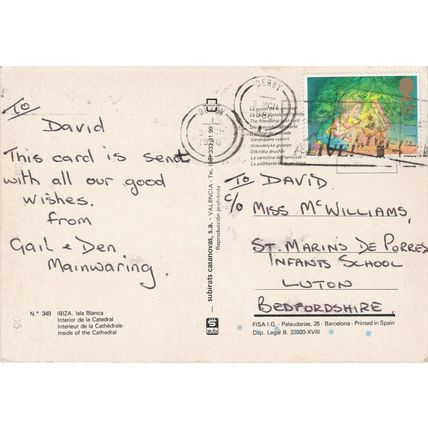 To
David
This card is sent
with all our good
wishes.
from
Gail e Den
Mainwaring.
Nº 349 IBIZA. Isla Blanca
Interior de la Catedral
Interieur de la Cathédrale
Inside of the Cathedral
subirats casanovas, s.a. - VALENCIA - Tel.
Reproducción prohibida
DERBY
To DAVID.
c/o MISS McWILLIAMS,
ST. MARINS DE PORRES
INFANTS SCHOOL
LUTON
BEDFORDSHIRE.
FISA I.G. - Palaudarias, 26 - Barcelona - Printed in Spain
Dip. Legal B. 22920-XVIII